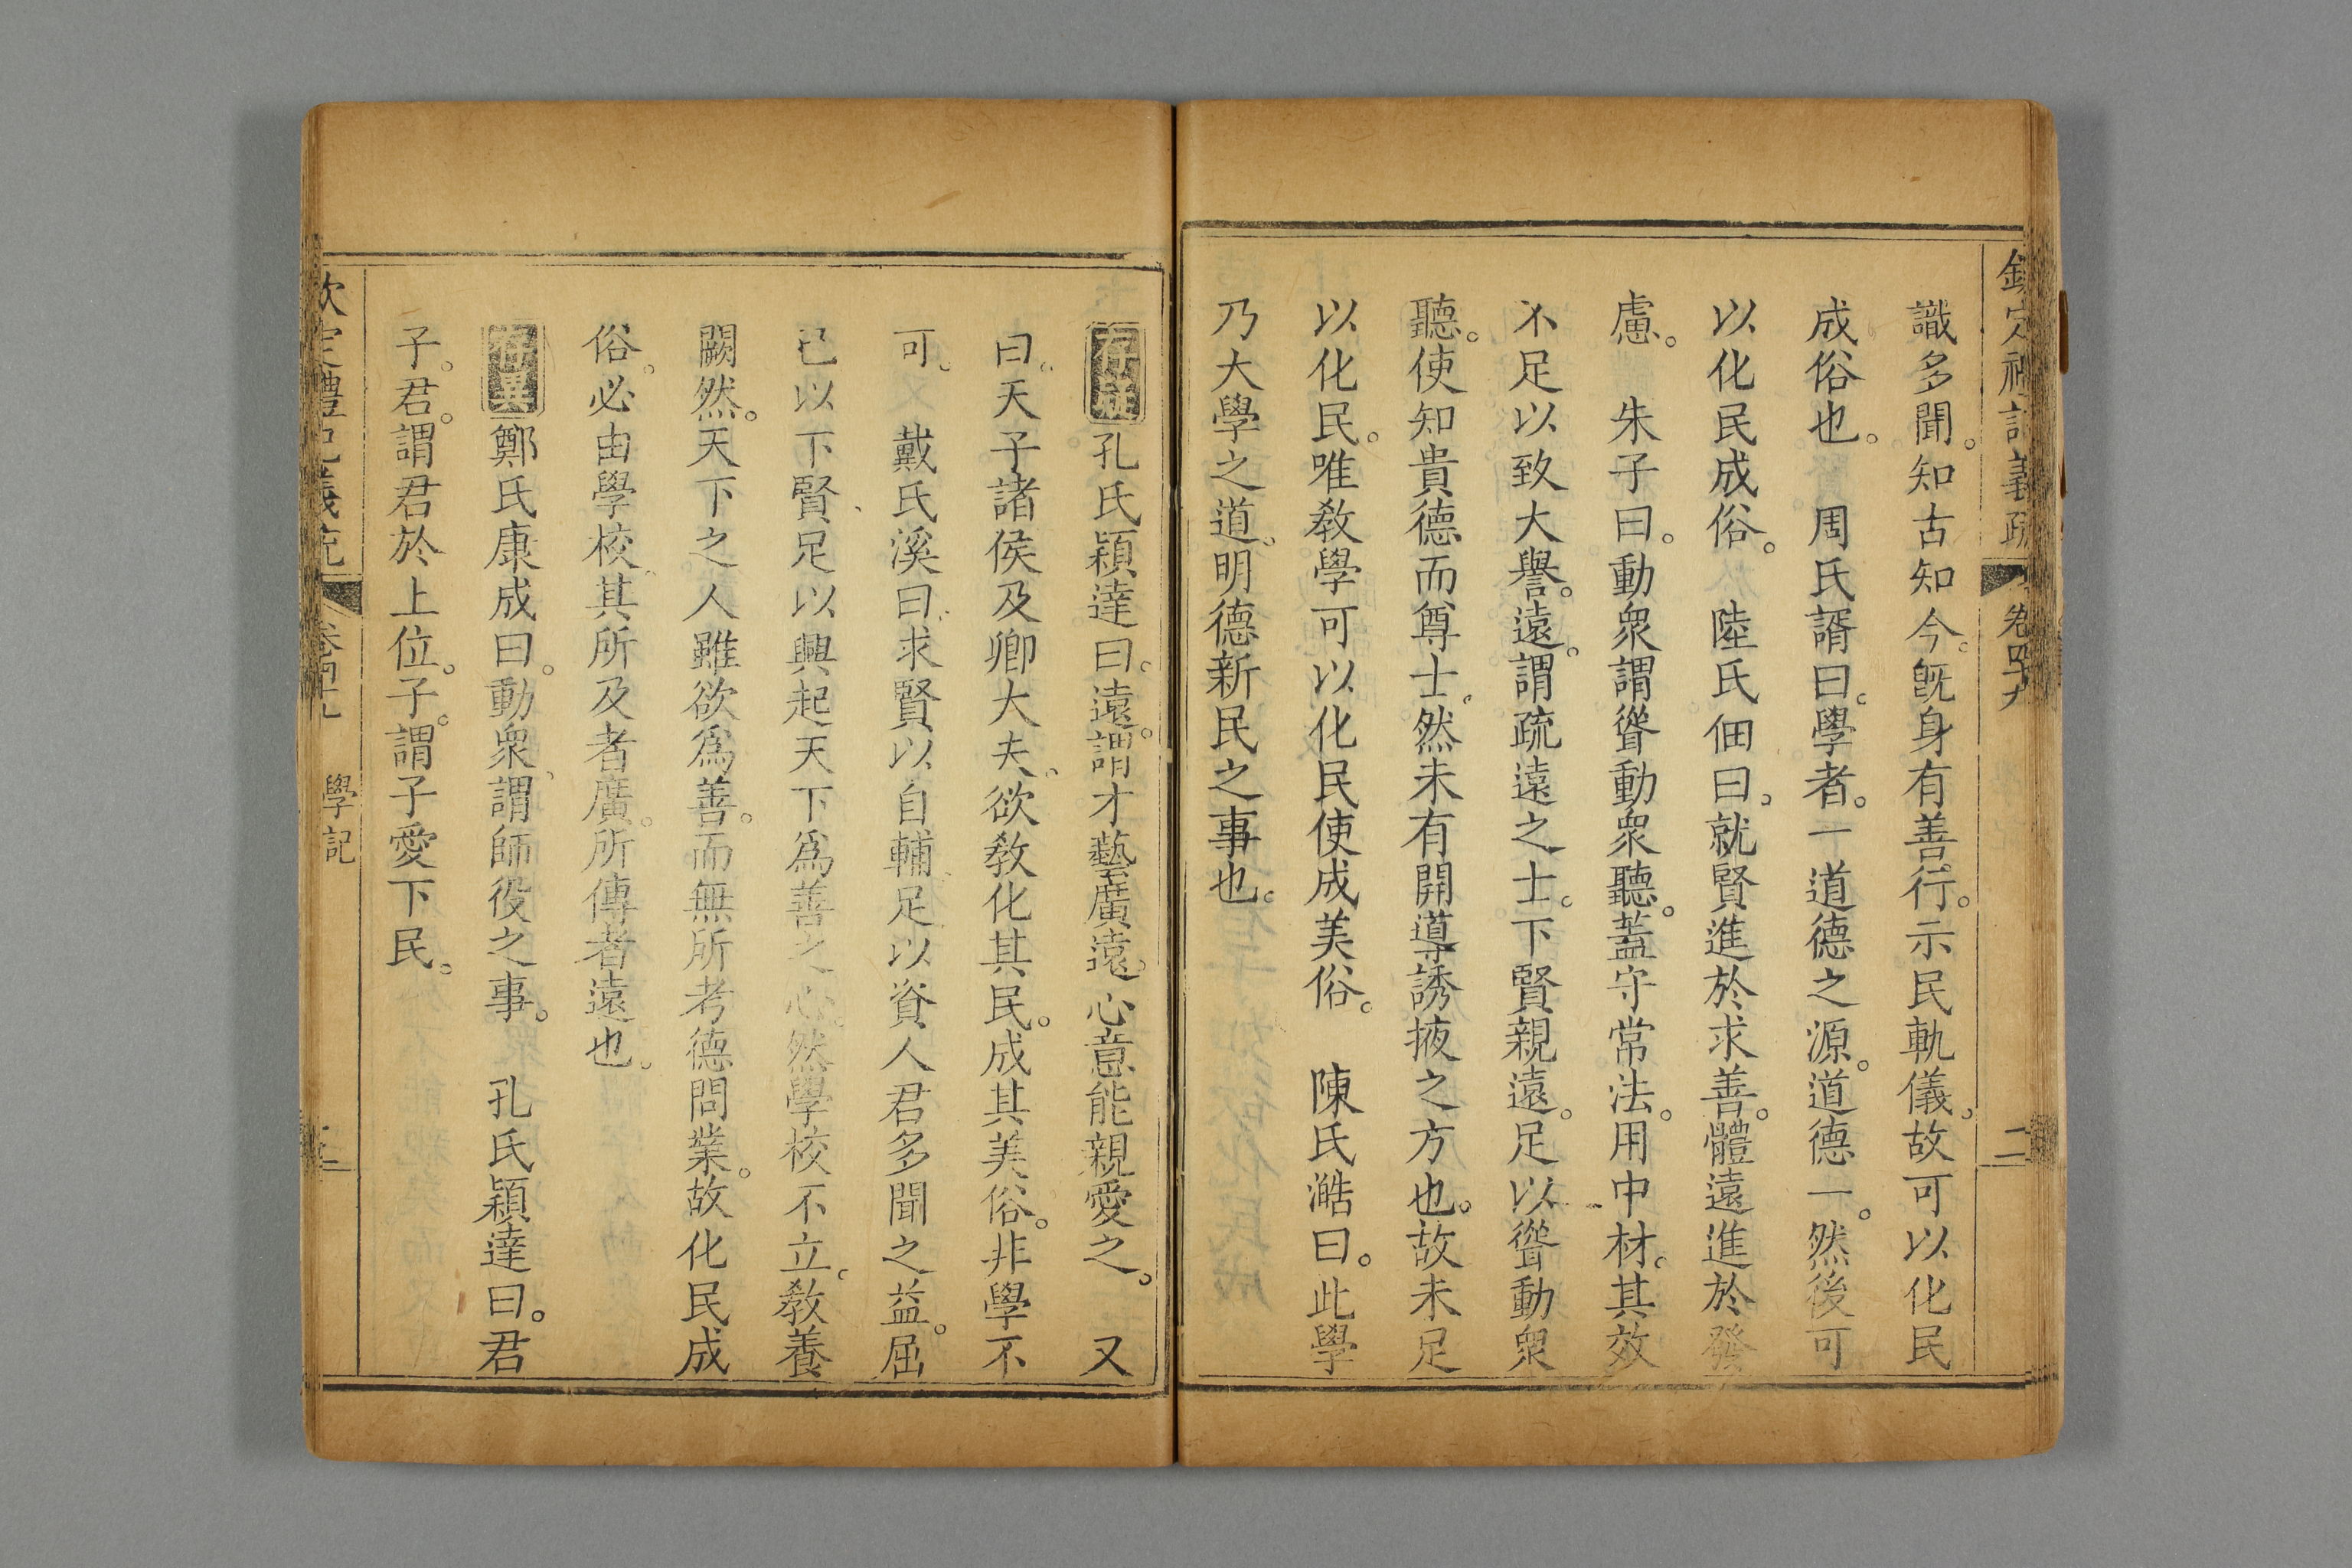 欽定禮記義疏 卷四十九 二
識多聞。知古知今。旣身有善行。示民軌儀。故可以化民
成俗也。 周氏諝曰。學者。一道德之源。道德一。然後可
以化民成俗。 陸氏佃曰。就賢進於求善。體遠進於發
慮。 朱子曰。動衆謂聳動衆聽。蓋守常法。用中材。其效
不足以致大譽。遠。謂疏遠之士。下賢親遠。足以聳動衆
聽。使知貴德而尊士。然未有開導誘掖之方也。故未足
以化民。唯敎學可以化民使成美俗。 陳氏澔曰。此學
乃大學之道。明德新民之事也。
存疑 孔氏穎達曰。遠。謂才藝廣遠。心意能親愛之。 又
曰。天子諸侯及卿大夫。欲敎化其民。成其美俗。非學不
可。 戴氏溪曰。求賢以自輔。足以資人君多聞之益。屈
已以下賢、足以興起天下爲善之心。然學校不立。敎養
闕然。天下之人雖欲爲善。而無所考德問業。故化民成
俗。必由學校。其所及者廣。所傳者遠也。
存異 鄭氏康成曰。動衆、謂師役之事。 孔氏穎達曰。君
子。君。謂君於上位。子。謂子愛下民。
欽定禮記義疏 卷四十九 學記